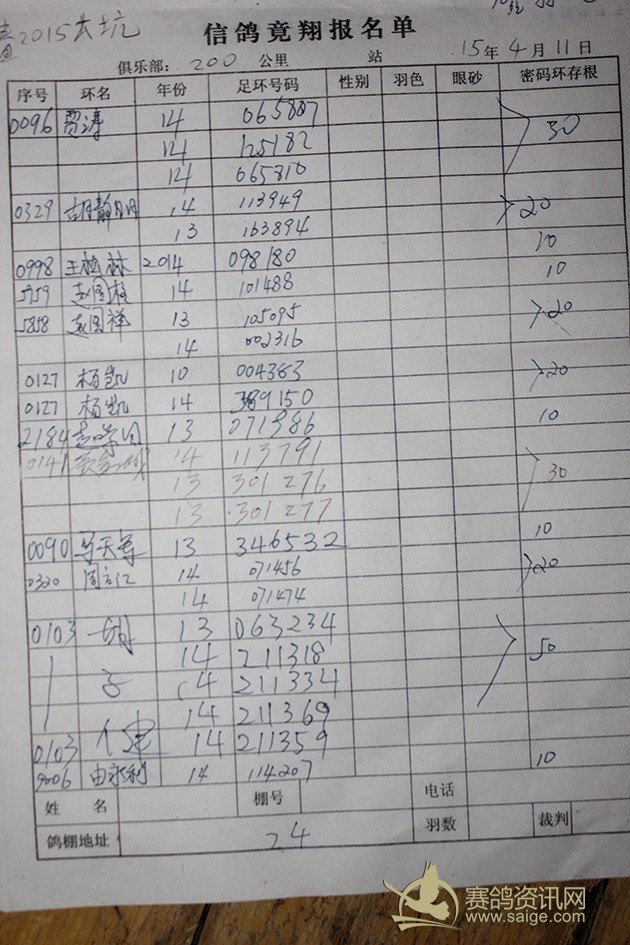 2015去坑
信鸽竟翔报名单
俱乐部: 200 公里 站 15年4月11日
序号 环名 年份 足环号码 性别 羽色 眼砂 密码环存根
0096 贾涛 14 065807
14 125182 30
14 065810
0329 14 113949 20
13 163894
0998 王松林 2014 098180 10
5959 14 101488 10
5858 赵国祥 13 105095 20
14 002316
0127 杨凯 10 004383 20
0127 杨凯 14 389150
2184 13 071386 10
0141 14 113791
13 301276 30
13 301277
0090 13 346532 10
0320 周立江 14 071456 20
14 071474
0103 胡 13 063234
14 211318 50
子 14 211334
14 211369
0103 14 211359
9006 由永利 14 114207 10
姓 名 棚号 电话
鸽棚地址 24 羽数 裁判
赛鸽资讯网
www.saige.com